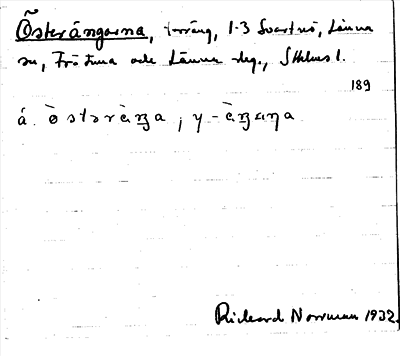 Österängarna, torräng, 1-3 Svartnö, Länna
sn, Frötuna och Länna slg., Sthlms l.
189
á. ò̀stəræ̀ŋa ; y -æ̀ŋaɳa
Rickard Norrman 1932.